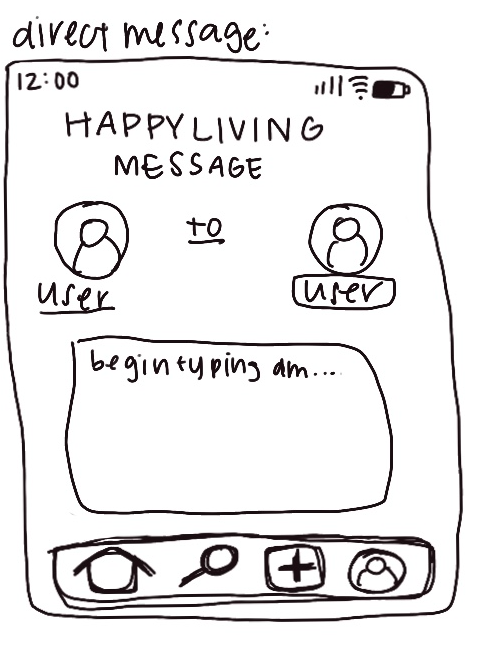 direct message:
12:00
HAPPYLIVING
MESSAGE
to
user
user
begin typing dm...